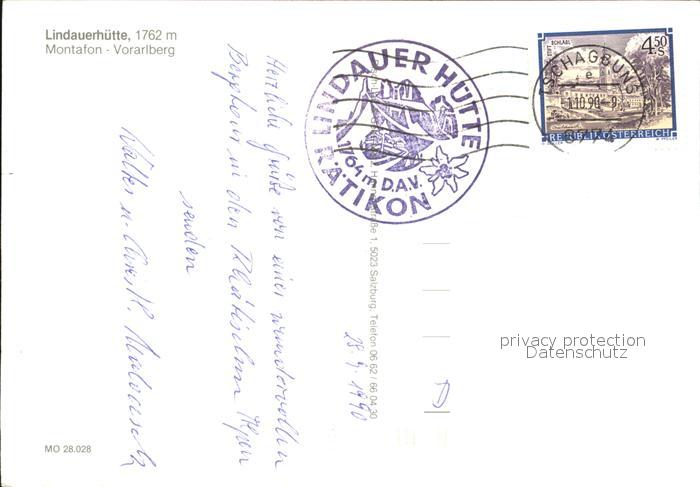 Lindauerhütte, 1762 m
Montafon - Vorarlberg
Herzliche Grüße von einer wundervollen
Bergtour in den Rhätischen Alpen
senden
Walter u.
28.9.1990
D
LINDAUER HÜTTE
1764 m D.A.V.
RÄTIKON
straße 1, 5023 Salzburg, Telefon 06 62 / 66 04 30
STIFT SCHLÄGL
4.50
S
TSCHAGGUNS
1.10.90 - 9
REPUBLIK ÖSTERREICH
privacy protection
Datenschutz
MO 28.028